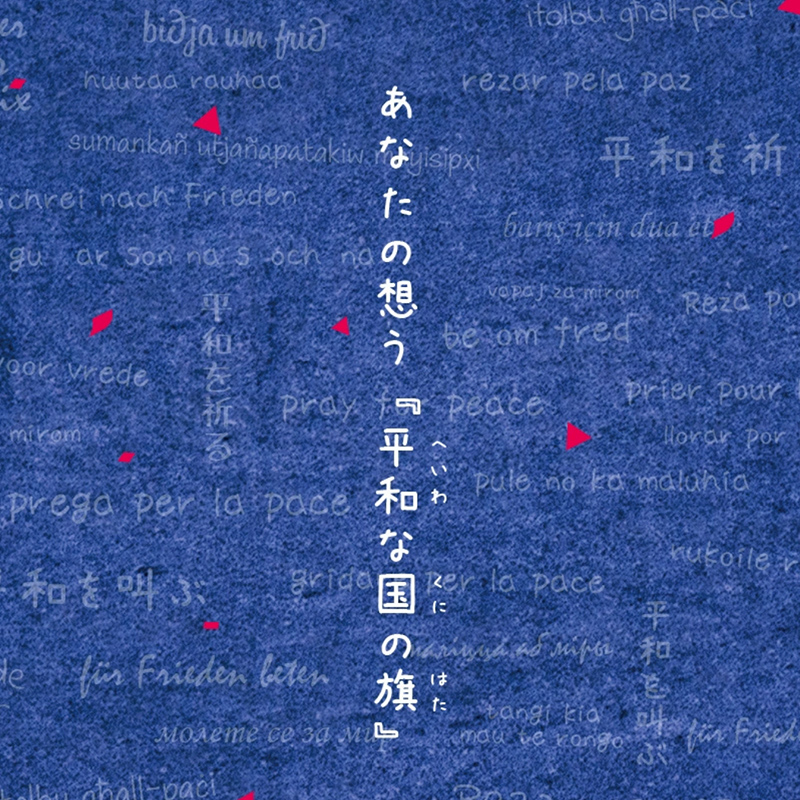 biðja um frið
itolbu għall-paċi
huutaa rauhaa
rezar pela paz
sumankañ utjañapatakiw mayisipxi
平和を祈
Schrei nach Frieden
barış için dua et
be om fred
平和を祈る
voor vrede
pray for peace
prier pour
mirom
llorar por
prega per la pace
pule no ka maluhia
平和を叫ぶ
grida per la pace
平和を叫ぶ
für Frieden beten
молете се за мир
tangi kia
mau te rongo
für Frieden
あなたの想う『平和な国の旗』
へいわ
くに
はた